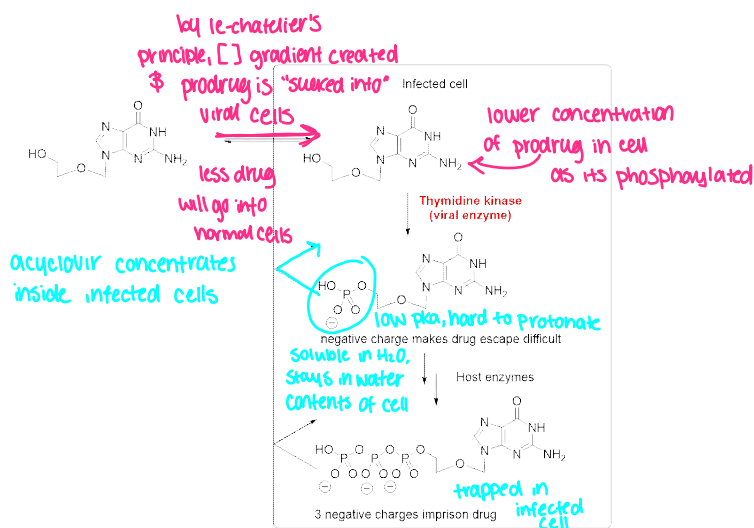 by le-chatelier's
principle, [] gradient created
& prodrug is "sucked into"
viral cells
Infected cell
lower concentration
of prodrug in cell
as its phosphorylated
less drug
will go into
normal cells
Thymidine kinase
(viral enzyme)
acyclovir concentrates
inside infected cells
low pka, hard to protonate
negative charge makes drug escape difficult
soluble in H2O,
stays in water
contents of cell
Host enzymes
trapped in
infected
cell
3 negative charges imprison drug